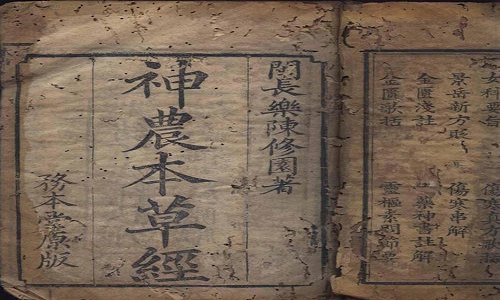 女科要旨
景岳新方砭
金匱淺註
金匱歌括
傷寒真方歌括
傷寒串解
十藥神書註解
靈樞素問節要
閩長樂陳修園著
神農本草經
務本堂原版